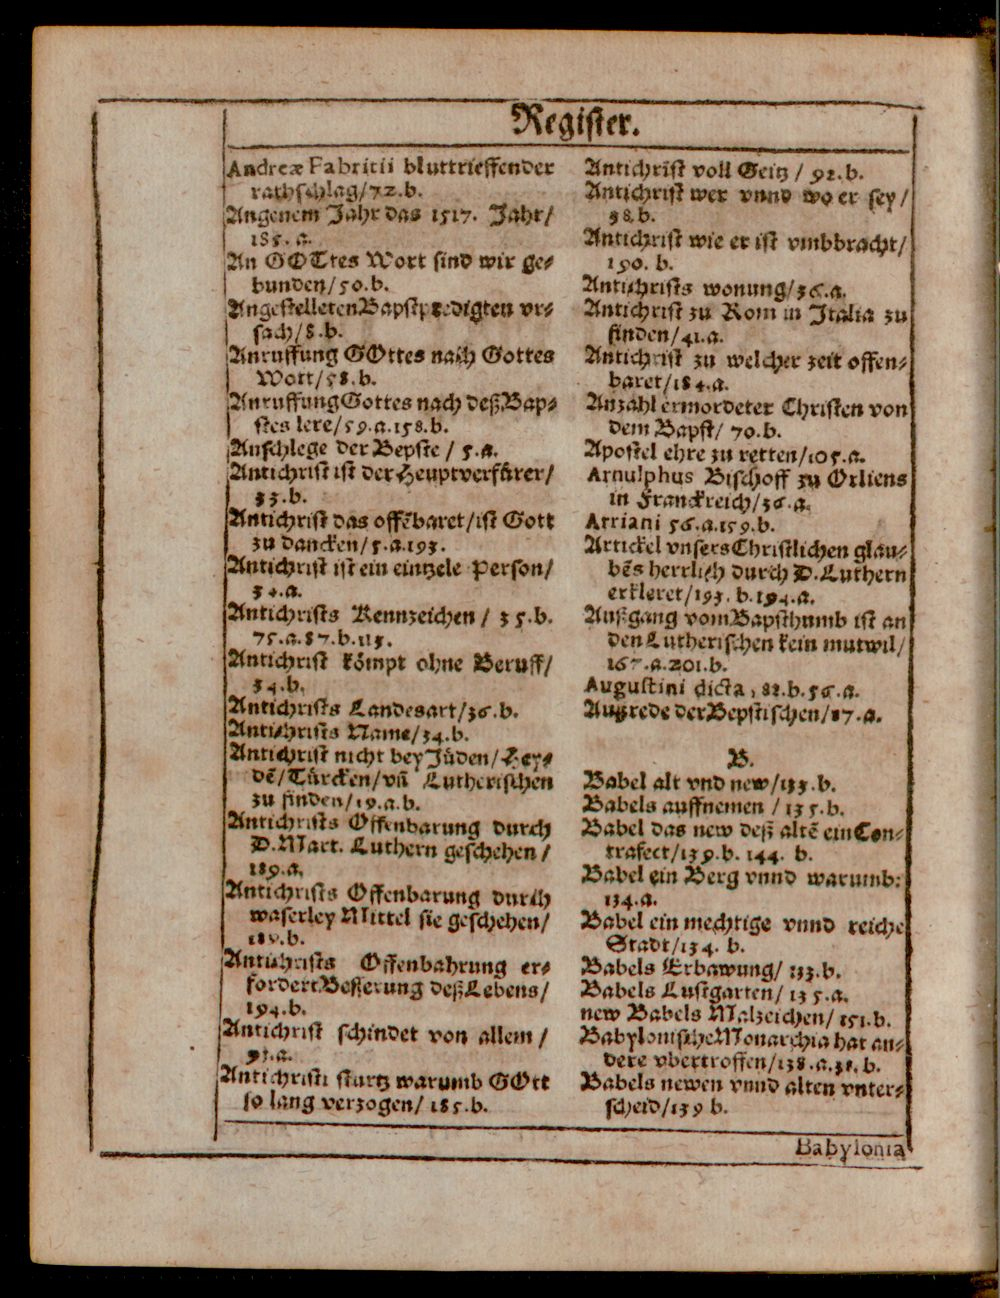 Register.
Andreæ Fabritii bluttrieffender
rathschlag/72.b.
Angenem Jahr das 1517. Jahr/
185. a.
An GOTtes Wort sind wir ge⸗
bunden/50.b.
Angestelleten Bapstpredigten vr⸗
sach/8.b.
Anruffung GOttes nach Gottes
Wort/58.b.
Anruffung Gottes nach deß Bap⸗
stes lere/59.a.158.b.
Anschlege der Bepste / 5.a.
Antichrist ist der Heuptverfürer/
33.b.
Antichrist das offēbaret/ist Gott
zu dancken/5.a.193.
Antichrist ist ein eintzele Person/
34.a.
Antichrists Kennzeichen / 35.b.
75.a.87.b.113.
Antichrist kömpt ohne Beruff/
34.b.
Antichrists Landesart/36.b.
Antichrists Name/34.b.
Antichrist nicht bey Jüden/Hey⸗
dē/Türcken/vñ Lutherischen
zu finden/19.a.b.
Antichrists Offenbarung durch
D.Mart. Luthern geschehen/
189.a.
Antichrists Offenbarung durch
waserley Mittel sie geschehen/
189.b.
Antichrists Offenbahrung er⸗
fordert Besserung deß Lebens/
194.b.
Antichrist schindet von allem /
91.a.
Antichristi sturtz warumb GOtt
so lang verzogen/ 185.b.
Antichrist voll Geitz / 92.b.
Antichrist wer vnnd wo er sey/
38.b.
Antichrist wie er ist vmbbracht/
190. b.
Antichrists wonung/36.a.
Antichrist zu Rom in Italia zu
finden/41.a.
Antichrist zu welcher zeit offen⸗
baret/184.a.
Anzahl ermordeter Christen von
dem Bapst/ 70.b.
Apostel ehre zu retten/105.a.
Arnulphus Bischoff zu Orliens
in Franckreich/36.a.
Arriani 56.a.159.b.
Artickel vnsers Christlichen glau⸗
bēs herrlich durch D.Luthern
erkleret/193. b.194.a.
Außgang vom Bapsthumb ist an
den Lutherischen kein mutwil/
167.a.201.b.
Augustini dicta, 82.b.56.a.
Außrede der Bepstischen/87.a.
B.
Babel alt vnd new/133.b.
Babels auffnemen / 135.b.
Babel das new deß altē ein Con⸗
trafect/139.b. 144. b.
Babel ein Berg vnnd warumb:
134.a.
Babel ein mechtige vnnd reiche
Stadt/134. b.
Babels Erbawung/ 133.b.
Babels Lustgarten/ 135.a.
new Babels Malzeichen/ 151.b.
Babylonische Monarchia hat an⸗
dere vbertroffen/138.a.38.b.
Babels newen vnnd alten vnter⸗
scheid/139 b.
Babylonia